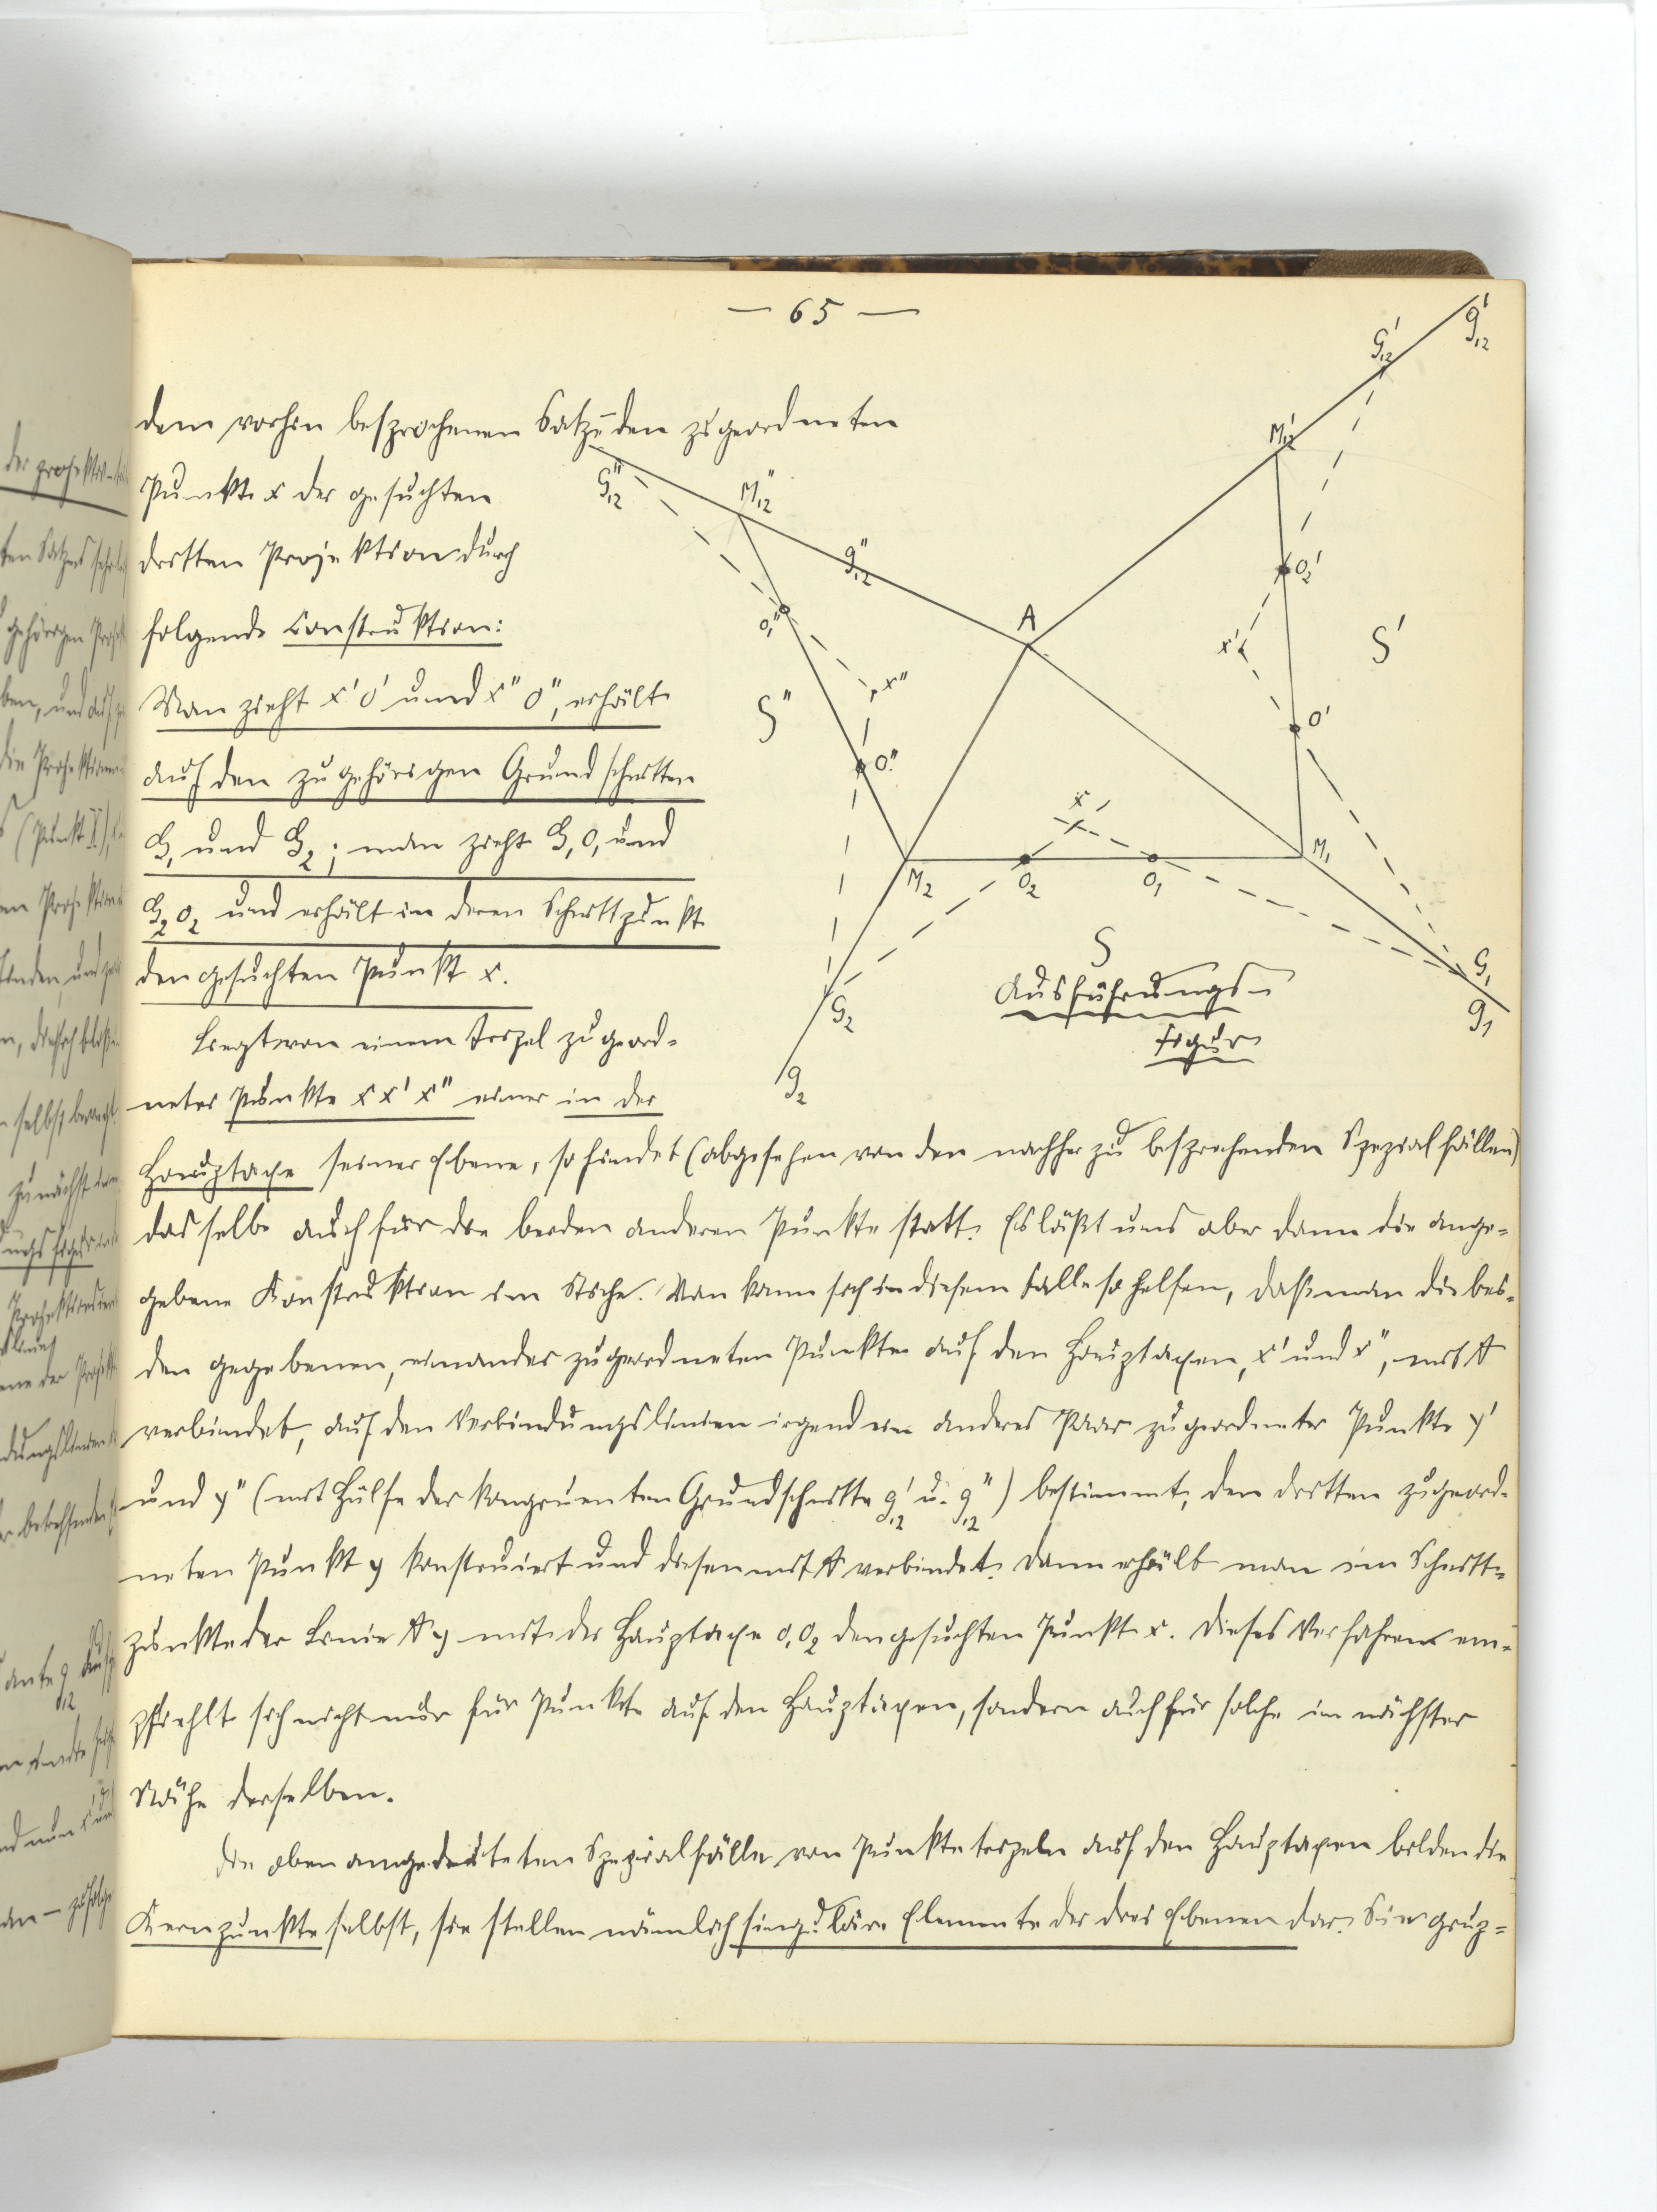 — 65 —
dem vorhin besprochenen Satze den zugeordneten
Punkt x der gesuchten
dritten Projektion durch
folgende Construktion:
Man zieht x' O' und x" O", erhält
auf den zugehörigen Grundschnitten
G₁ und G₂; man zieht G₁O₁ und
G₂O₂ und erhält in deren Schnittpunkt
den gesuchten Punkt x.
Liegt von einem Tripel zugeord-
neter Punkte x x' x" einer in der
Hauptaxe seiner Ebene, so findet (abgesehen von den nachher zu besprechenden Spezialfällen)
dasselbe auch für die beiden anderen Punkte statt. Es läßt uns aber dann die ange-
gebene Konstruktion im Stiche. Man kann sich in diesem Falle so helfen, daß man die bei-
den gegebenen, einander zugeordneten Punkte auf den Hauptaxen, x' und x", mit A
verbindet, auf den Verbindungslinien irgend ein anderes Paar zugeordneter Punkte y'
und y" (mit Hülfe der kongruenten Grundschnitte g'₁₂ u. g"₁₂) bestimmt, den dritten zugeord-
neten Punkt y konstruiert und diesen mit A verbindet. Dann erhält man im Schnitt-
punkte der Linie A y mit der Hauptaxe O₁O₂ den gesuchten Punkt x. Dieses Verfahren em-
pfiehlt sich nicht nur für Punkte auf den Hauptaxen, sondern auch für solche in nächster
Nähe derselben.
Die oben angedeuteten Spezialfälle von Punktetripeln auf den Hauptaxen bilden die
Kernpunkte selbst, sie stellen nämlich singuläre Elemente der drei Ebenen dar. Sie grup-
g'₁₂
G'₁₂
M'₁₂
G"₁₂
M"₁₂
g"₁₂
O₂'
A
O₁"
x'
S'
x"
S"
O'
O"
x
M₂
O₂
O₁
M₁
S
G₁
G₂
g₁
Ausführungs-
figur
g₂